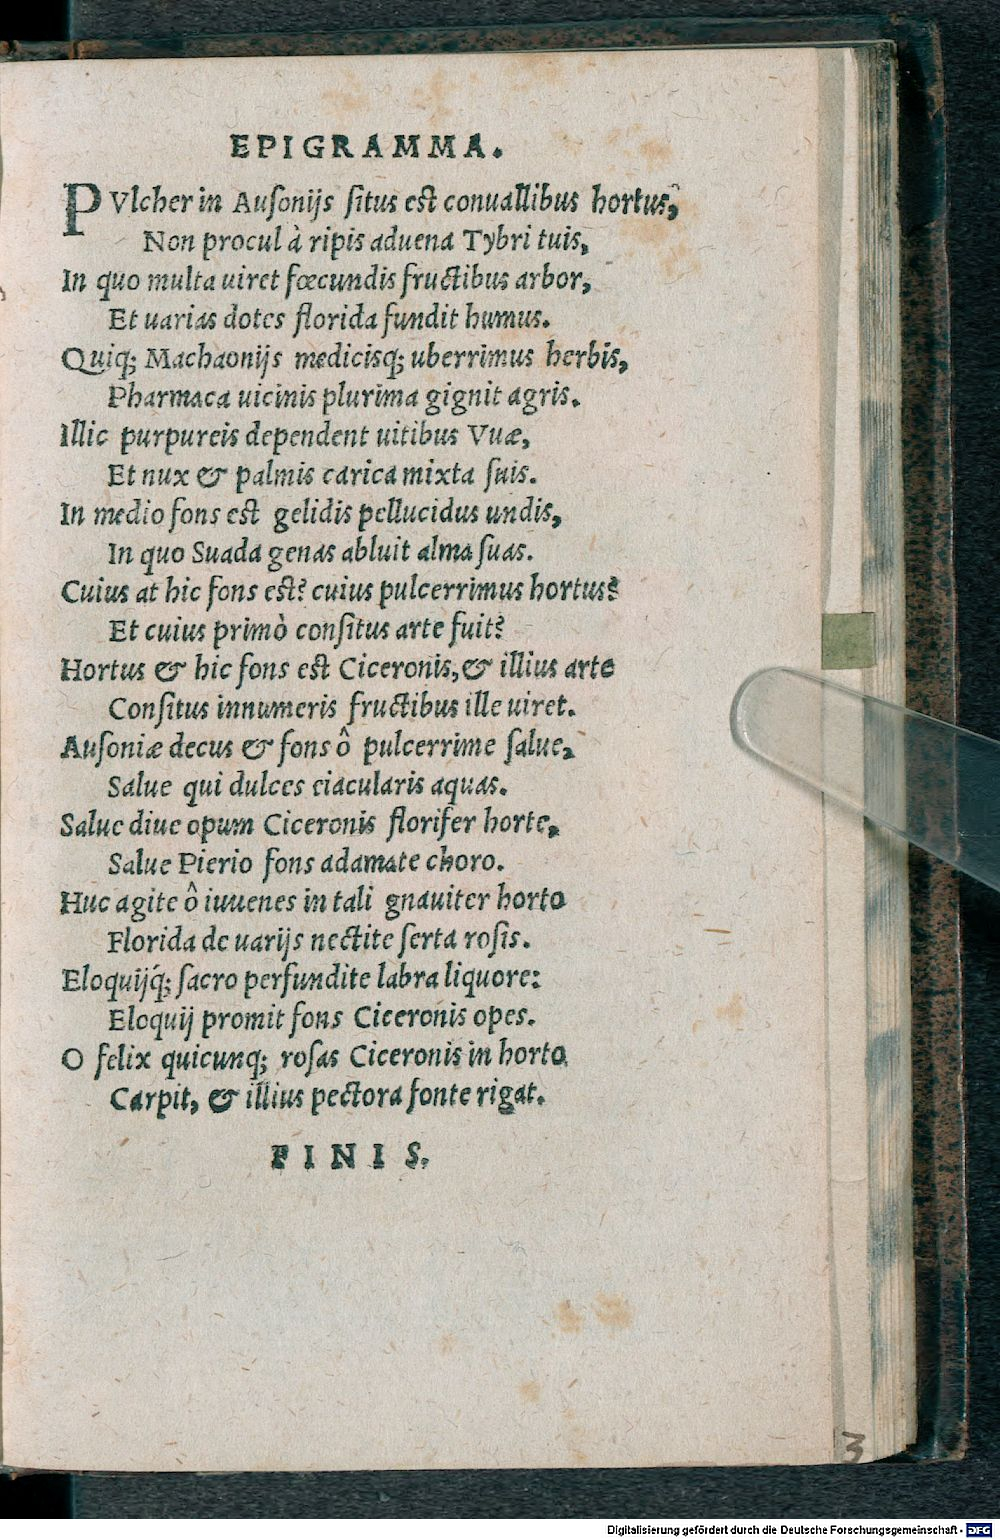 EPIGRAMMA.
PVlcher in Auſonijs ſitus est conuallibus hortus,
Non procul à ripis aduena Tybri tuis,
In quo multa uiret fœcundis fructibus arbor,
Et uarias dotes florida fundit humus.
Quiq; Machaonijs medicisq; uberrimus herbis,
Pharmaca uicinis plurima gignit agris.
Illic purpureis dependent uitibus Vuæ,
Et nux & palmis carica mixta ſuis.
In medio fons est gelidis pellucidus undis,
In quo Suada genas abluit alma ſuas.
Cuius at hic fons est? cuius pulcerrimus hortus?
Et cuius primò conſitus arte fuit?
Hortus & hic fons est Ciceronis, & illius arte
Conſitus innumeris fructibus ille uiret.
Auſoniæ decus & fons ô pulcerrime ſalue,
Salue qui dulces eiacularis aquas.
Salue diue opum Ciceronis florifer horte,
Salue Pierio fons adamate choro.
Huc agite ô iuuenes in tali gnauiter horto
Florida de uarijs nectite ſerta roſis.
Eloquijq́; ſacro perfundite labra liquore:
Eloquij promit fons Ciceronis opes.
O felix quicunq; roſas Ciceronis in horto
Carpit, & illius pectora fonte rigat.
FINIS.
3
Digitalisierung gefördert durch die Deutsche Forschungsgemeinschaft - DFG